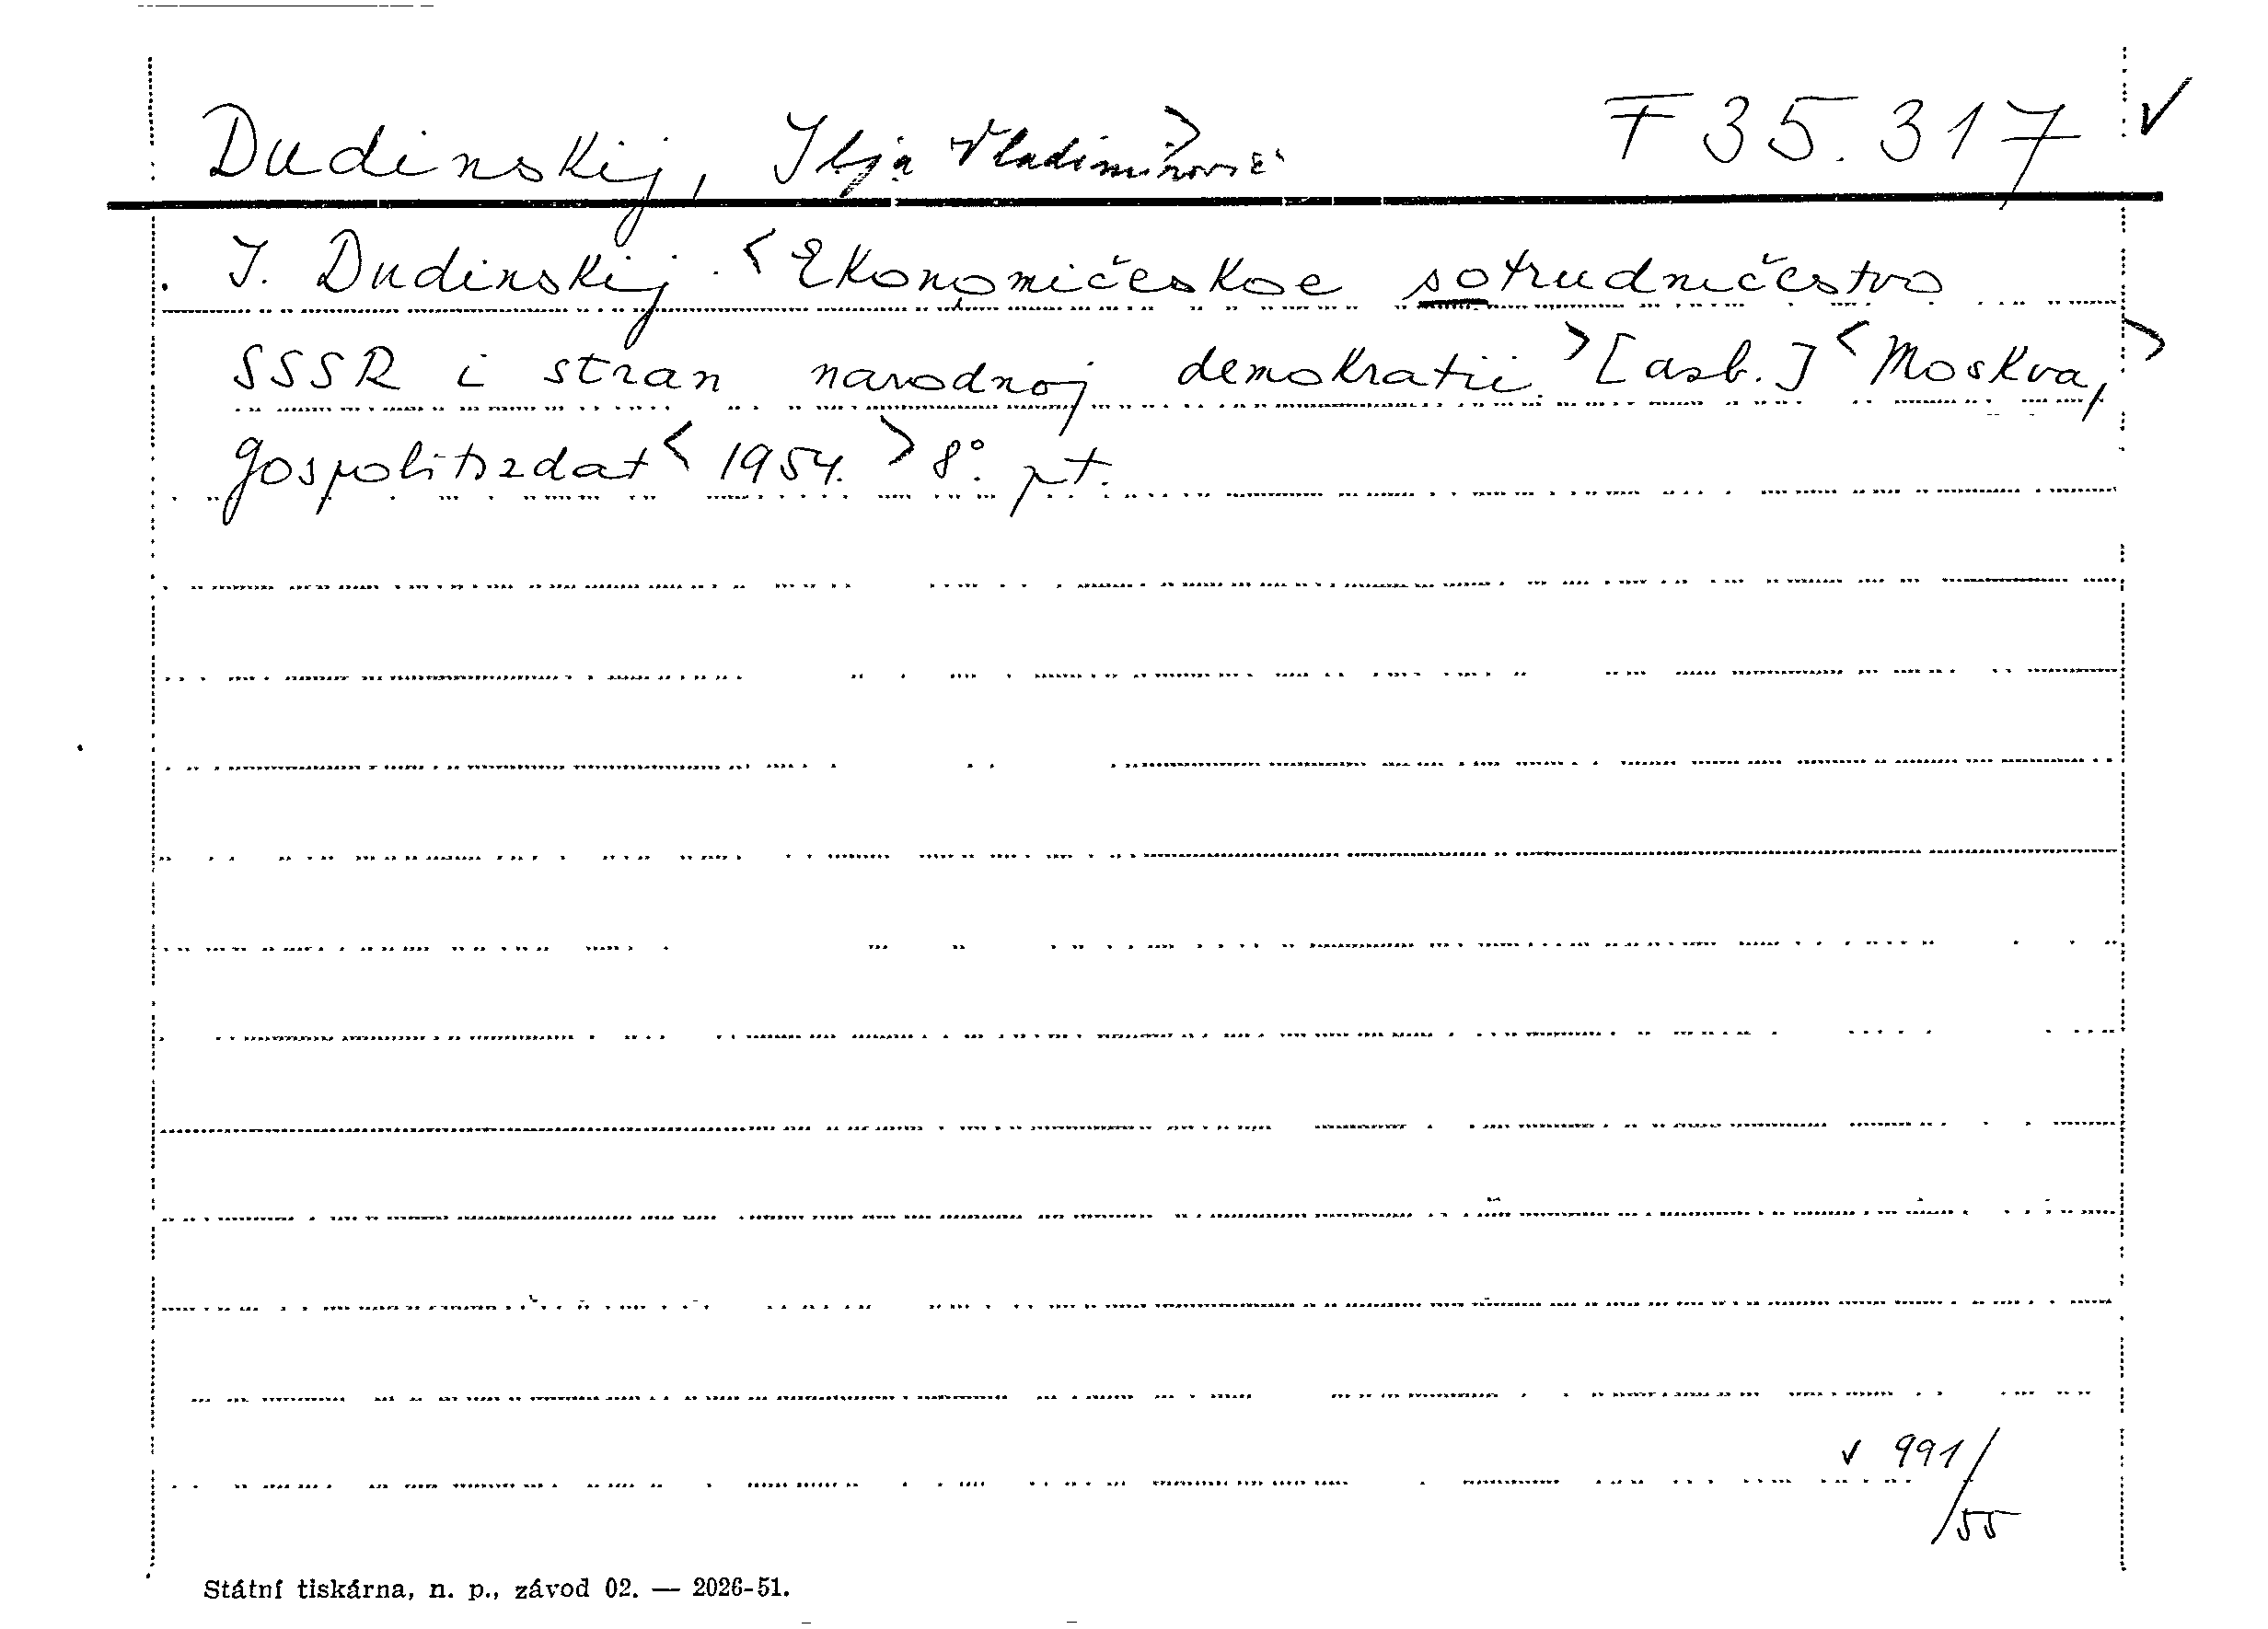 Dudinskij, Ilja Vladimirovič> F 35.317 ✓
I. Dudinskij. <Ekonomičeskoe sotrudničestvo
SSSR i stran narodnoj demokratii.> [asb.] <Moskva,>
Gospolitizdat <1954.> 8°. pt.
✓ 991/
55
Státní tiskárna, n. p., závod 02. — 2026-51.